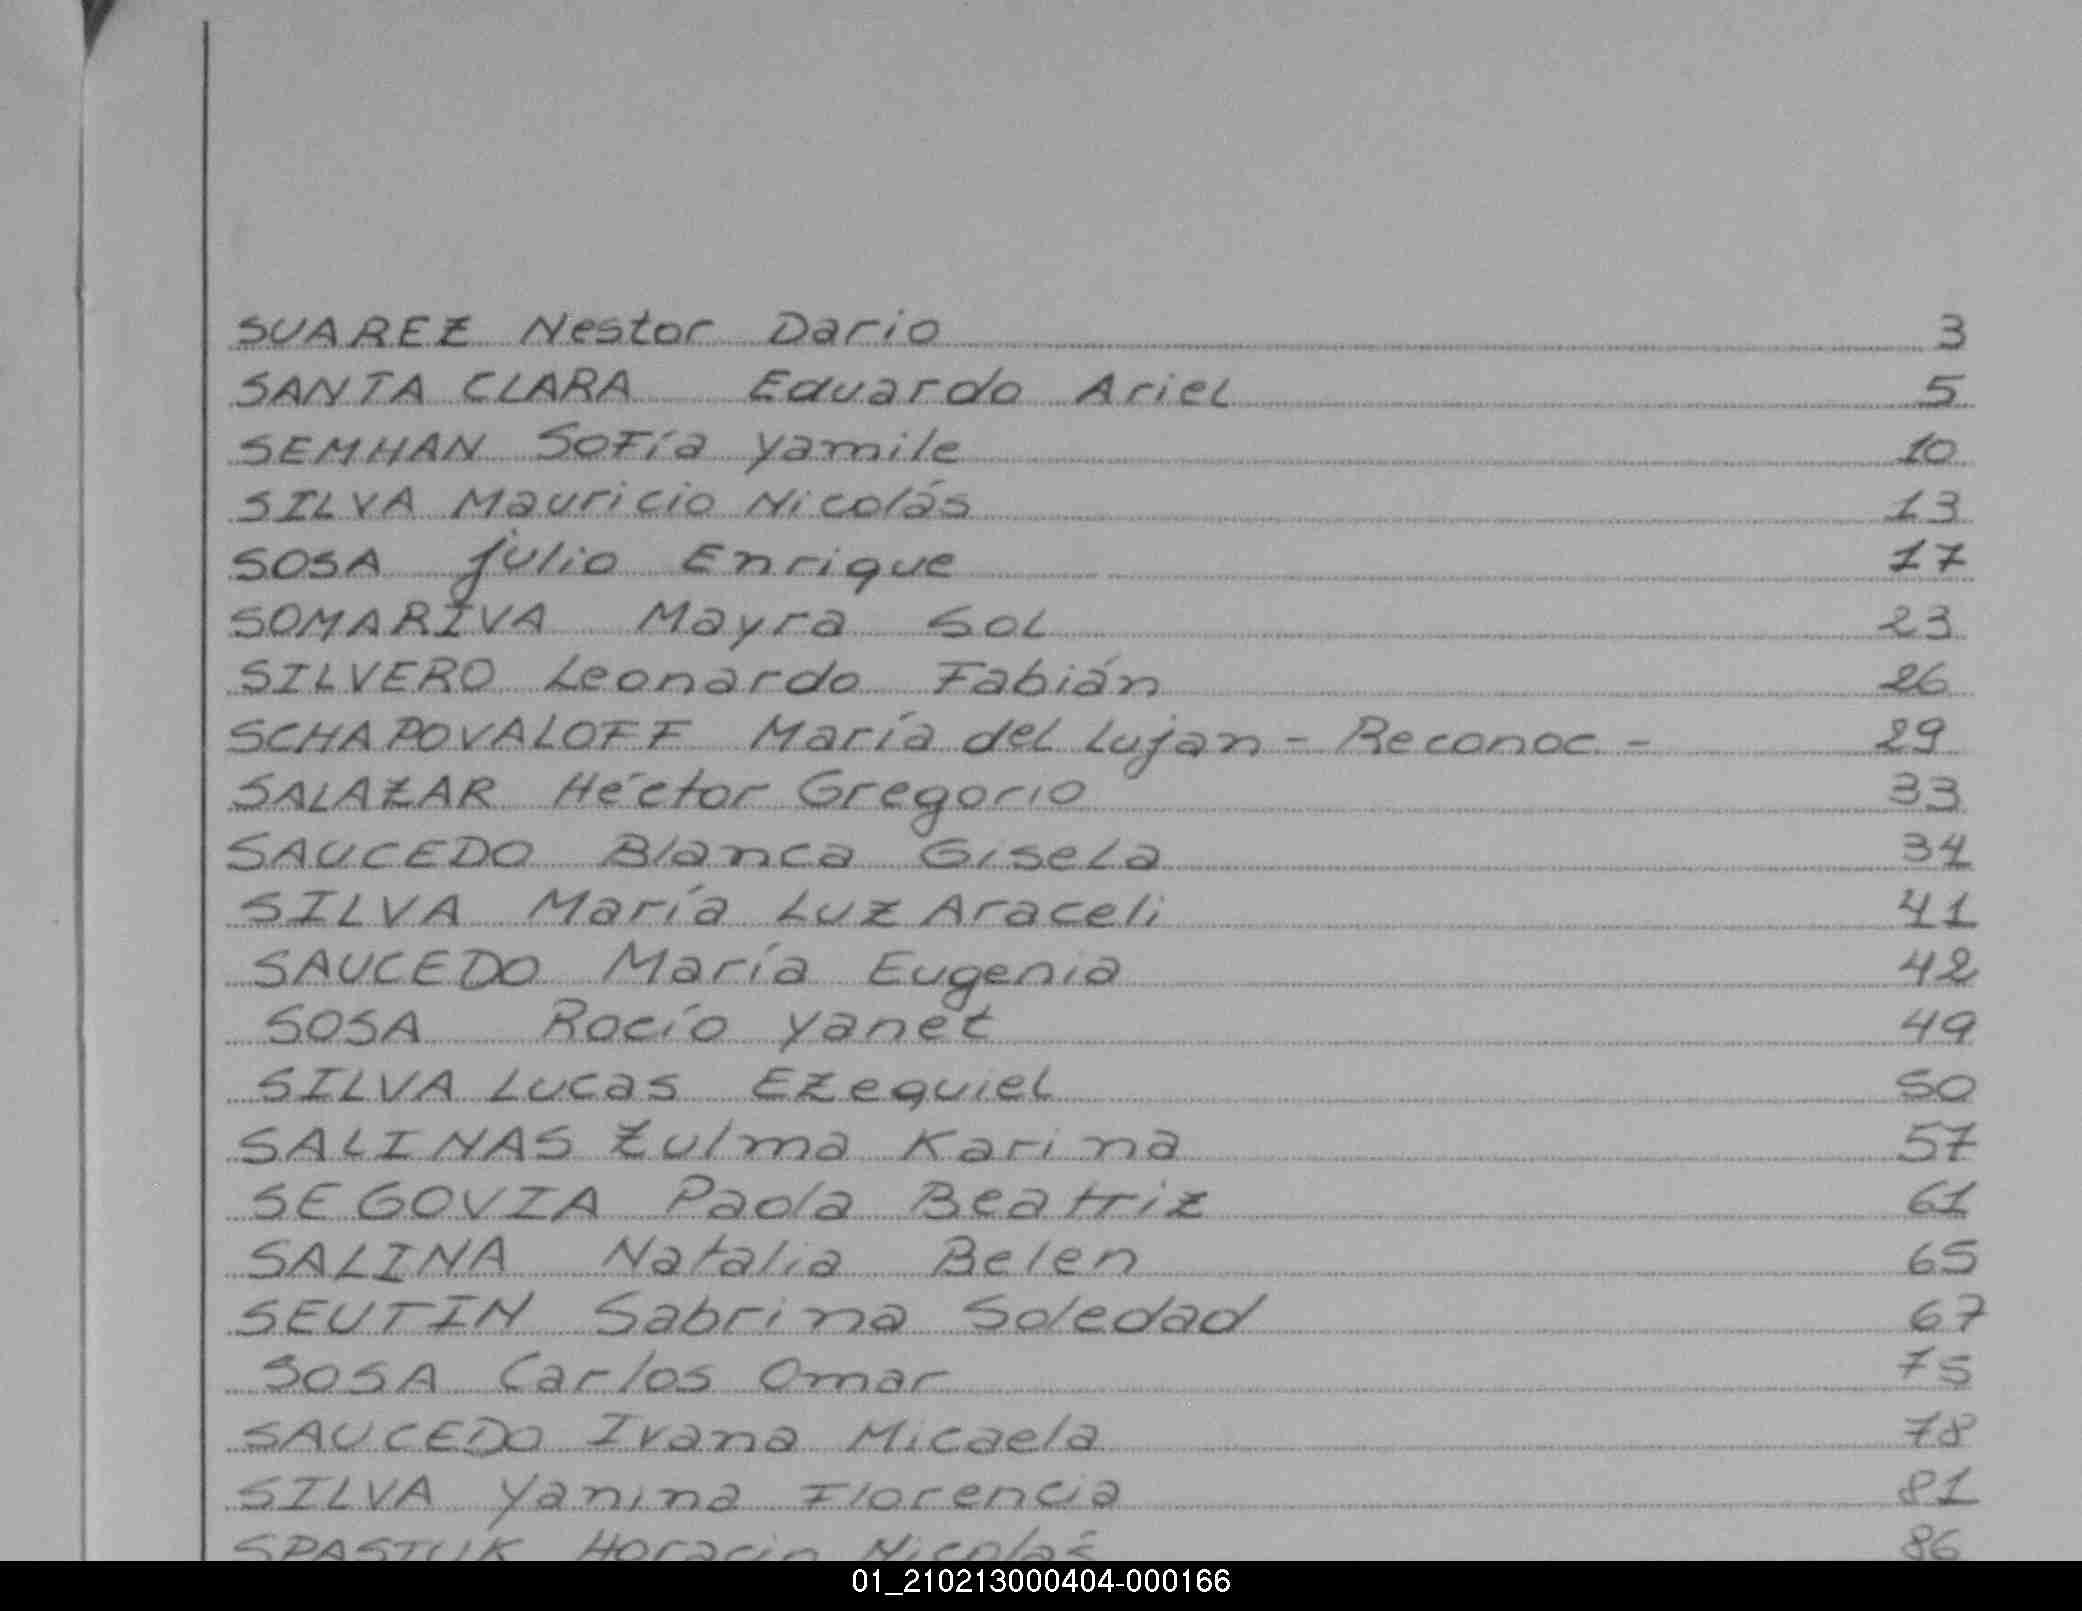 SUAREZ Nestor Dario 3
SANTA CLARA Eduardo Ariel 5
SEMHAN Sofía Yamile 10
SILVA Mauricio Nicolás 13
SOSA Julio Enrique 17
SOMARIVA Mayra Sol 23
SILVERO Leonardo Fabián 26
SCHAPOVALOFF María del Lujan - Reconoc - 29
SALAZAR Héctor Gregorio 33
SAUCEDO Blanca Gisela 34
SILVA María Luz Araceli 41
SAUCEDO María Eugenia 42
SOSA Rocío Yanet 49
SILVA Lucas Ezequiel 50
SALINAS Zulma Karina 57
SEGOVIA Paola Beatriz 61
SALINA Natalia Belen 65
SEUTIN Sabrina Soledad 67
SOSA Carlos Omar 75
SAUCEDO Ivana Micaela 78
SILVA Yanina Florencia 81
SPASTUK Horacio Nicolás 86
01_210213000404-000166